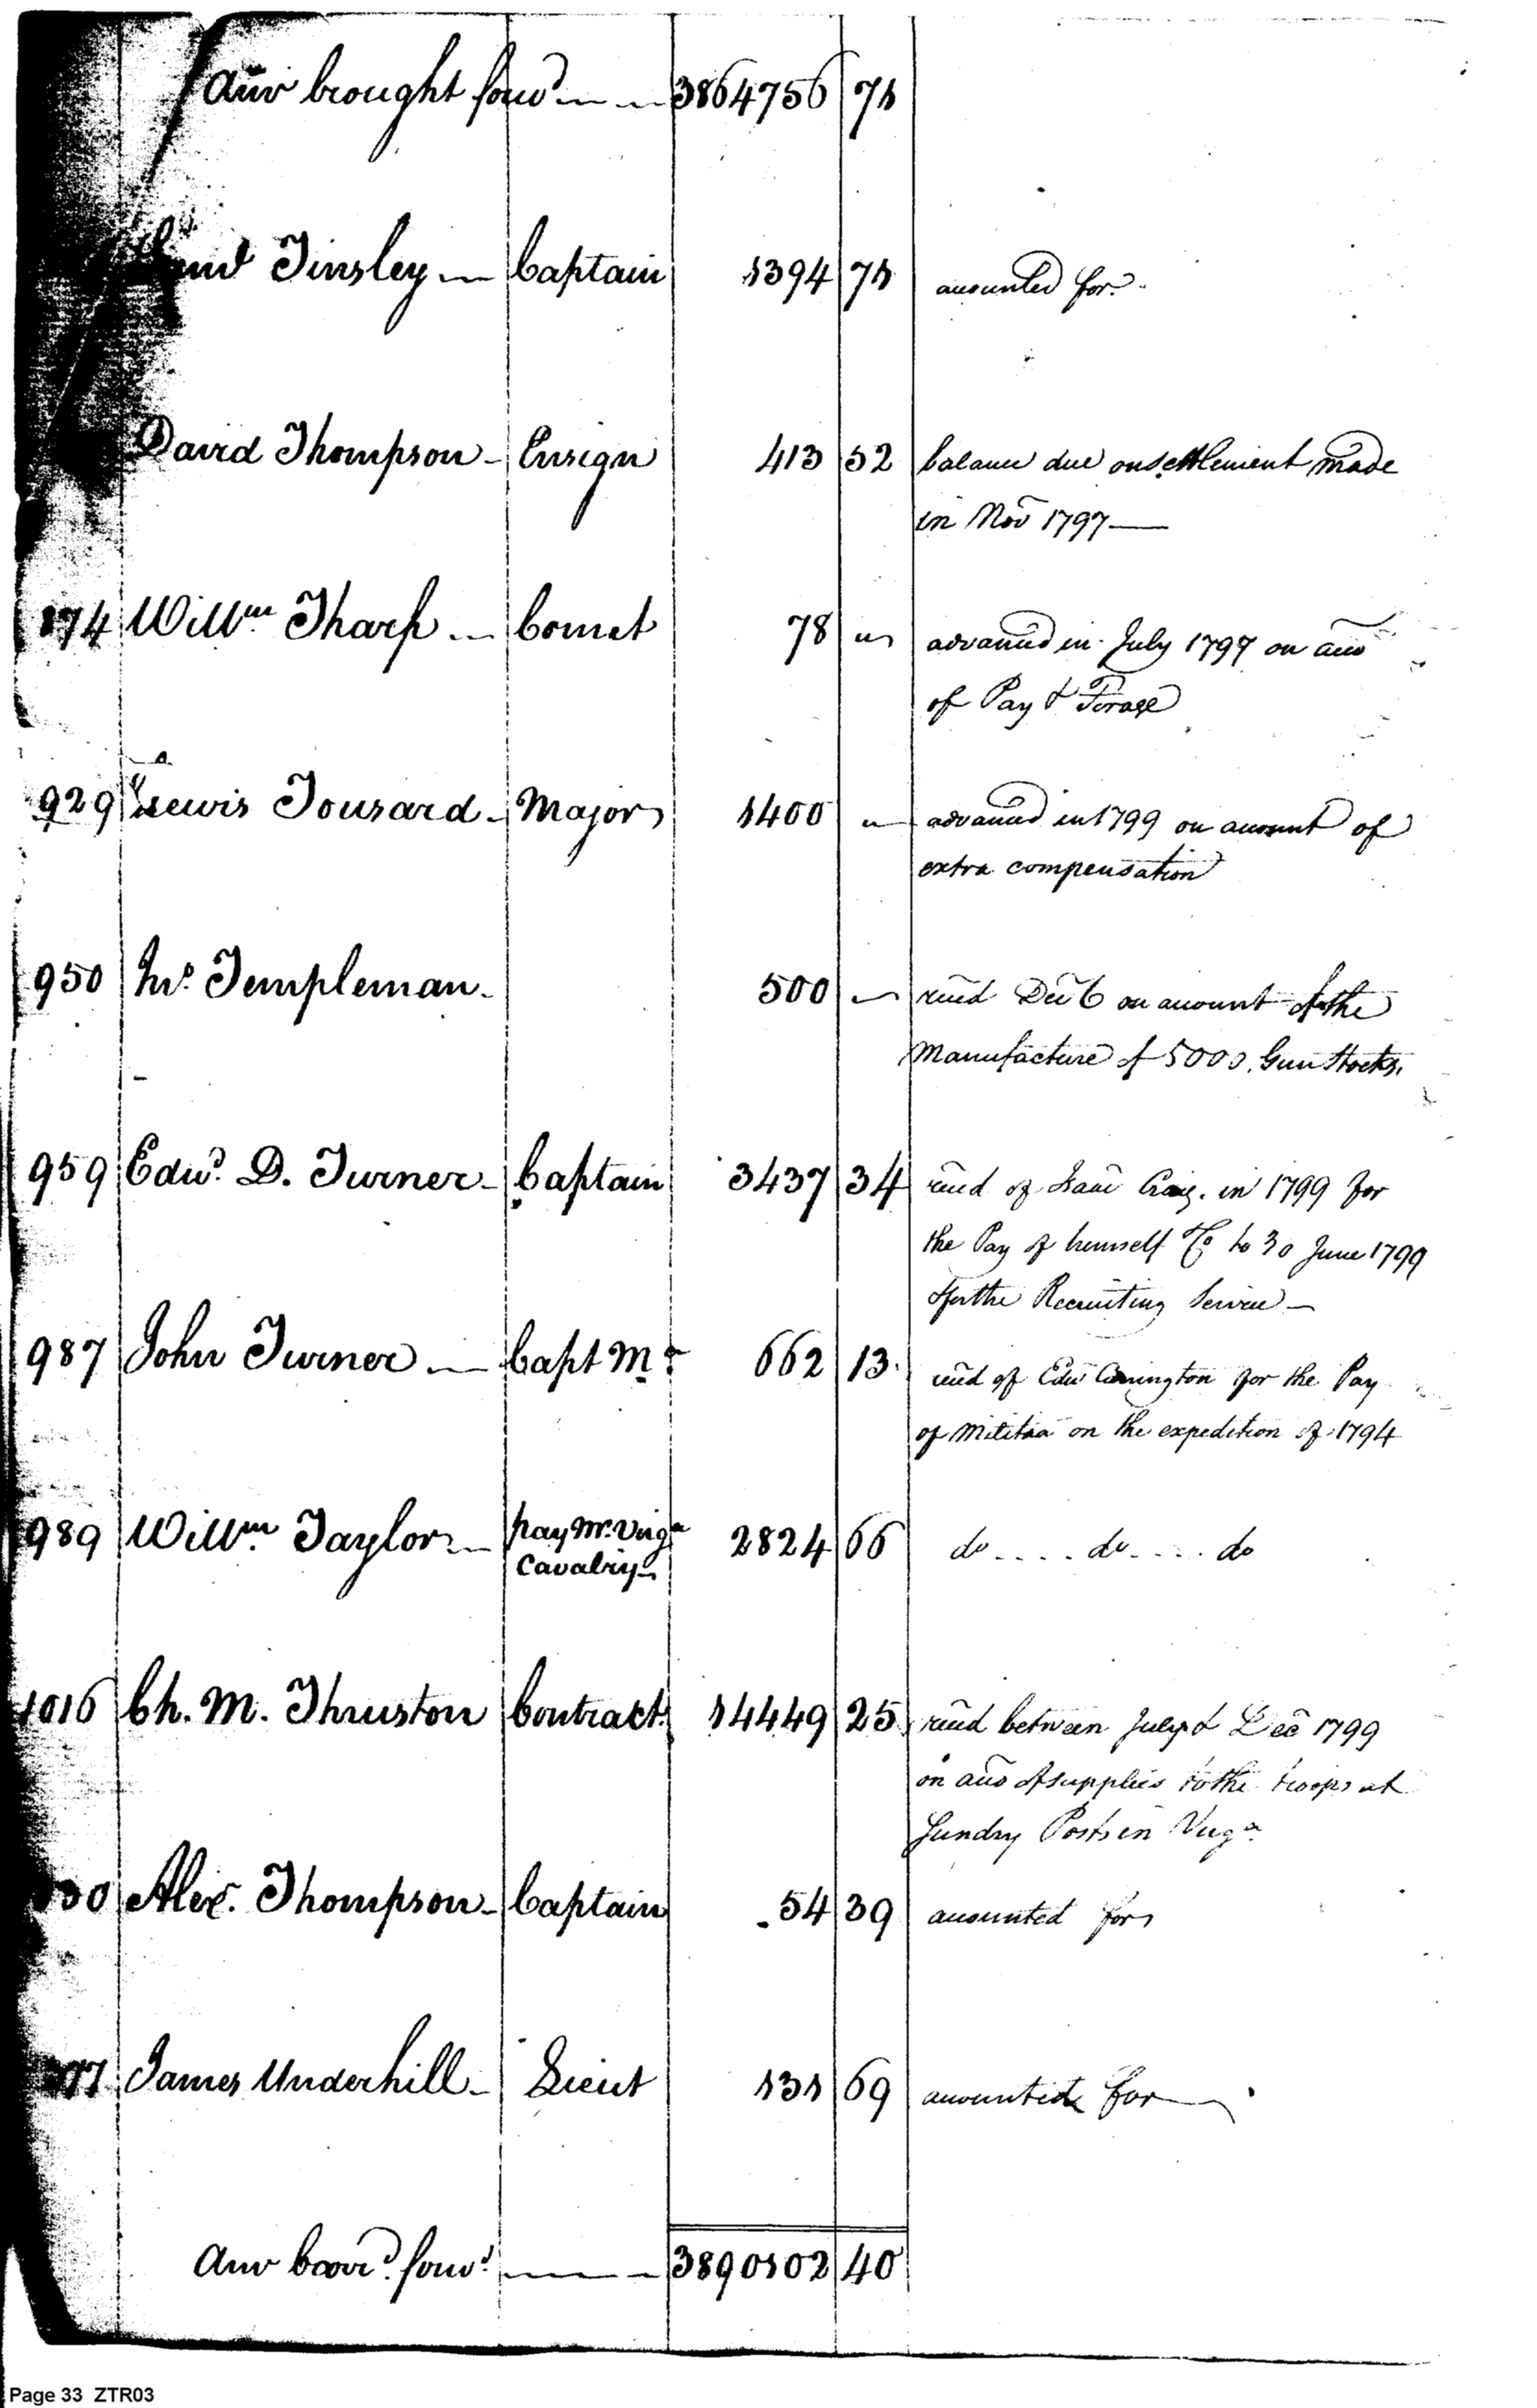 Amt brought forwd 3864756 71
Tinsley Captain 1394 71 accounted for
David Thompson Ensign 413 52 balance due on settlement made
in Nov 1797
874 Willm Tharp Cornet 78 " advanced in July 1797 on acco
of Pay & Forage
929 Lewis Tousard Major 1400 " advanced in 1799 on account of
extra compensation
950 Templeman 500 " recd Dec 6 on account of the
Manufacture of 5000 Gun Stocks.
959 Edwd. D. Turner Captain 3437 34 recd of Isaac Craig in 1799 for
the Pay of himself &c to 30 June 1799
& for the Recruiting Service
987 John Turner Capt Ma 662 13 recd of Edw Carrington for the Pay
of Militia on the expedition of 1794
989 Willm Taylor pay Mr. Virga 2824 66 do .... do .... do
Cavalry
1016 Ch. M. Thruston Contractr 14449 25 recd between July & Dec 1799
on acco of supplies to the troops at
Sundry Posts in Virga
Alex. Thompson Captain 54 39 accounted for
James Underhill Lieut 131 69 accounted for
Amt carrd. forwd. 3890102 40
Page 33 ZTR03